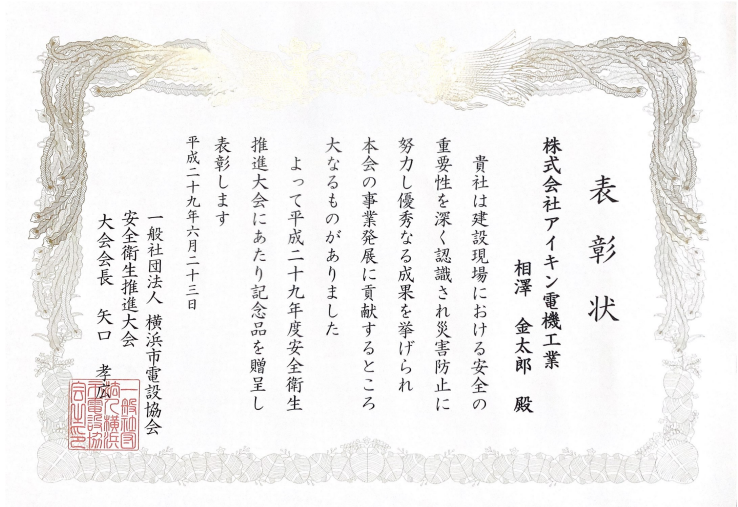 表彰状
株式会社アイキン電機工業
相澤 金太郎 殿
貴社は建設現場における安全の
重要性を深く認識され災害防止に
努力し優秀なる成果を挙げられ
本会の事業発展に貢献するところ
大なるものがありました
よって平成二十九年度安全衛生
推進大会にあたり記念品を贈呈し
表彰します
平成二十九年六月二十三日
一般社団法人 横浜市電設協会
安全衛生推進大会
大会会長 矢口 孝広
一般社団
法人横浜
市電設協
会之印